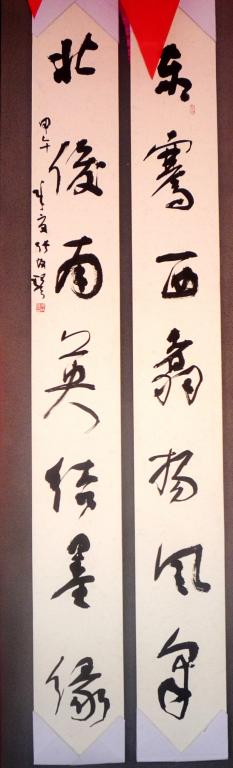 东骞西翥扬风采
北俊南英结墨缘
甲午